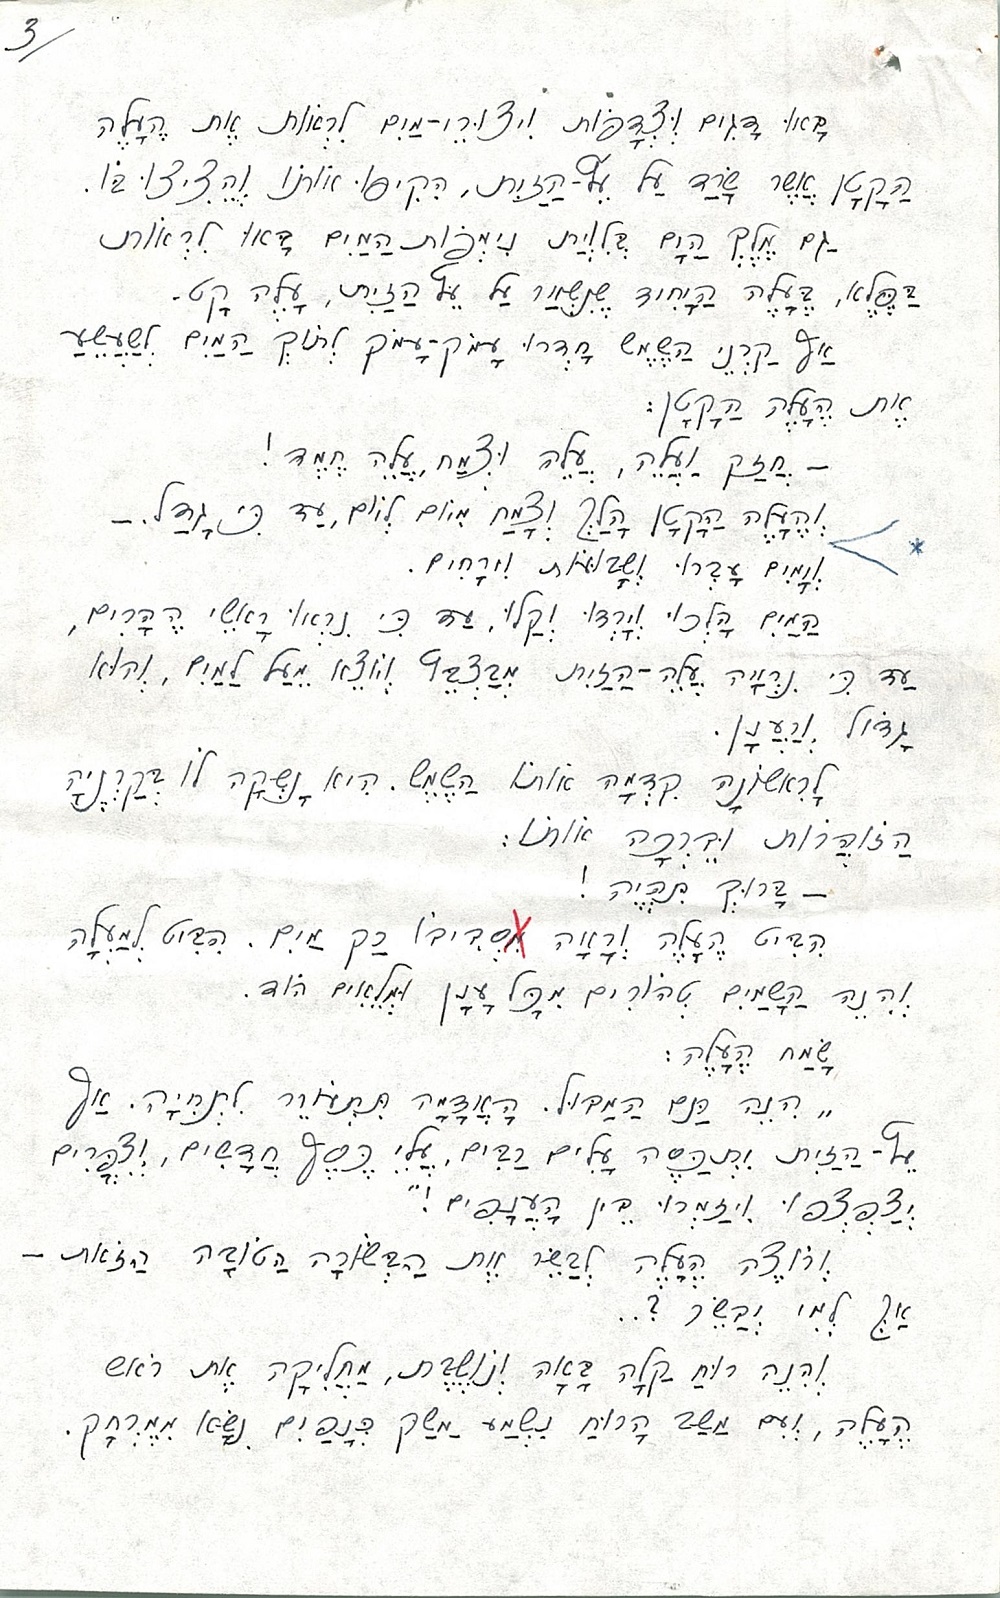 3/
בָּאוּ דָּגִים וּצְדָפוֹת וִיצוּרֵי-מַיִם לִרְאוֹת אֶת הֶעָלֶה
הַקָּטָן אֲשֶׁר שָׂרַד עַל עֵץ-הַזַּיִת, הִקִּיפוּ אוֹתוֹ וְהֵצִיצוּ בּוֹ.
גַּם מֶלֶךְ הַיָּם בִּלְוִיַּת נִימְפוֹת-הַמַּיִם בָּאוּ לִרְאוֹת
בַּפֶּלֶא, בֶּעָלֶה הַיָּחִיד שֶׁנִּשְׁאַר עַל עֵץ הַזַּיִת, עָלֶה קָט.
אַף קַרְנֵי הַשֶּׁמֶשׁ חָדְרוּ עָמֹק-עָמֹק לְתוֹךְ הַמַּיִם לְשַׁעֲשֵׁעַ
אֶת הֶעָלֶה הַקָּטָן:
– חֲזַק וַעֲלֵה, עֲלֵה וּצְמַח, עֲלֵה חֶמֶד!
וְהֶעָלֶה הַקָּטָן הָלַךְ וְצָמַח מִיּוֹם לְיוֹם, עַד כִּי גָּדַל. –
* וְיָמִים עָבְרוּ וְשָׁבוּעוֹת וִירָחִים.
הַמַּיִם הָלְכוּ וְיָרְדוּ וְקַלּוּ, עַד כִּי נִרְאוּ רָאשֵׁי הֶהָרִים,
עַד כִּי נִרְאָה עֲלֵה-הַזַּיִת מְבַצְבֵּץ וְיוֹצֵא מֵעַל לַמַּיִם, וְהוּא
גָּדוֹל וְרַעֲנָן.
לָרִאשׁוֹנָה קִדְּמָה אוֹתוֹ הַשֶּׁמֶשׁ. הִיא נָשְׁקָה לוֹ בְּקַרְנֶיהָ
הַזּוֹהֲרוֹת וּבֵרְכָה אוֹתוֹ:
– בָּרוּךְ תִּהְיֶה!
הִבִּיט הֶעָלֶה וְרָאָה סְבִיבוֹ רַק מַיִם. הִבִּיט לְמַעְלָה
וְהִנֵּה הַשָּׁמַיִם טְהוֹרִים מִכָּל עָנָן וּמְלֵאִים הוֹד.
שָׂמַח הֶעָלֶה:
„ הִנֵּה תַּם הַמַּבּוּל. הָאֲדָמָה תִּתְעוֹרֵר לִתְחִיָּה. אַף
עֵץ-הַזַּיִת יִתְכַּסֶּה עָלִים רַבִּים, עֲלֵי כֶּסֶף חֲדָשִׁים, וְצִפֳּרִים
יְצַפְצְפוּ וִיזַמְּרוּ בֵּין הָעֲנָפִים!"
וְרוֹצֶה הֶעָלֶה לְבַשֵּׂר אֶת הַבְּשׂוֹרָה הַטּוֹבָה הַזֹּאת –
אַךְ לְמִי יְבַשֵּׂר ?..
וְהִנֵּה רוּחַ קַלָּה בָּאָה וְנוֹשֶׁבֶת, מַחֲלִיקָה אֶת רֹאשׁ
הֶעָלֶה, וְעִם מַשַּׁב הָרוּחַ נִשְׁמַע מַשַּׁק כְּנָפַיִם נִשָּׂא מִמֶּרְחָק.